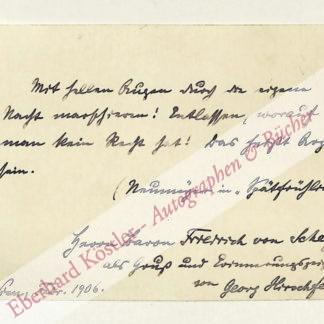 Mit hellen Augen durch die eigene
Nacht marschieren! Entlassen, worauf
man kein Recht hat! Das heißt
sein.
(Neumüng in „Spätfrühlin
Herrn Baron Friedrich von Sche
als Gruß und Erinnerungszei
von Georg Hirschfe
1906.
Eberhard Köstler - Autographen & Bücher